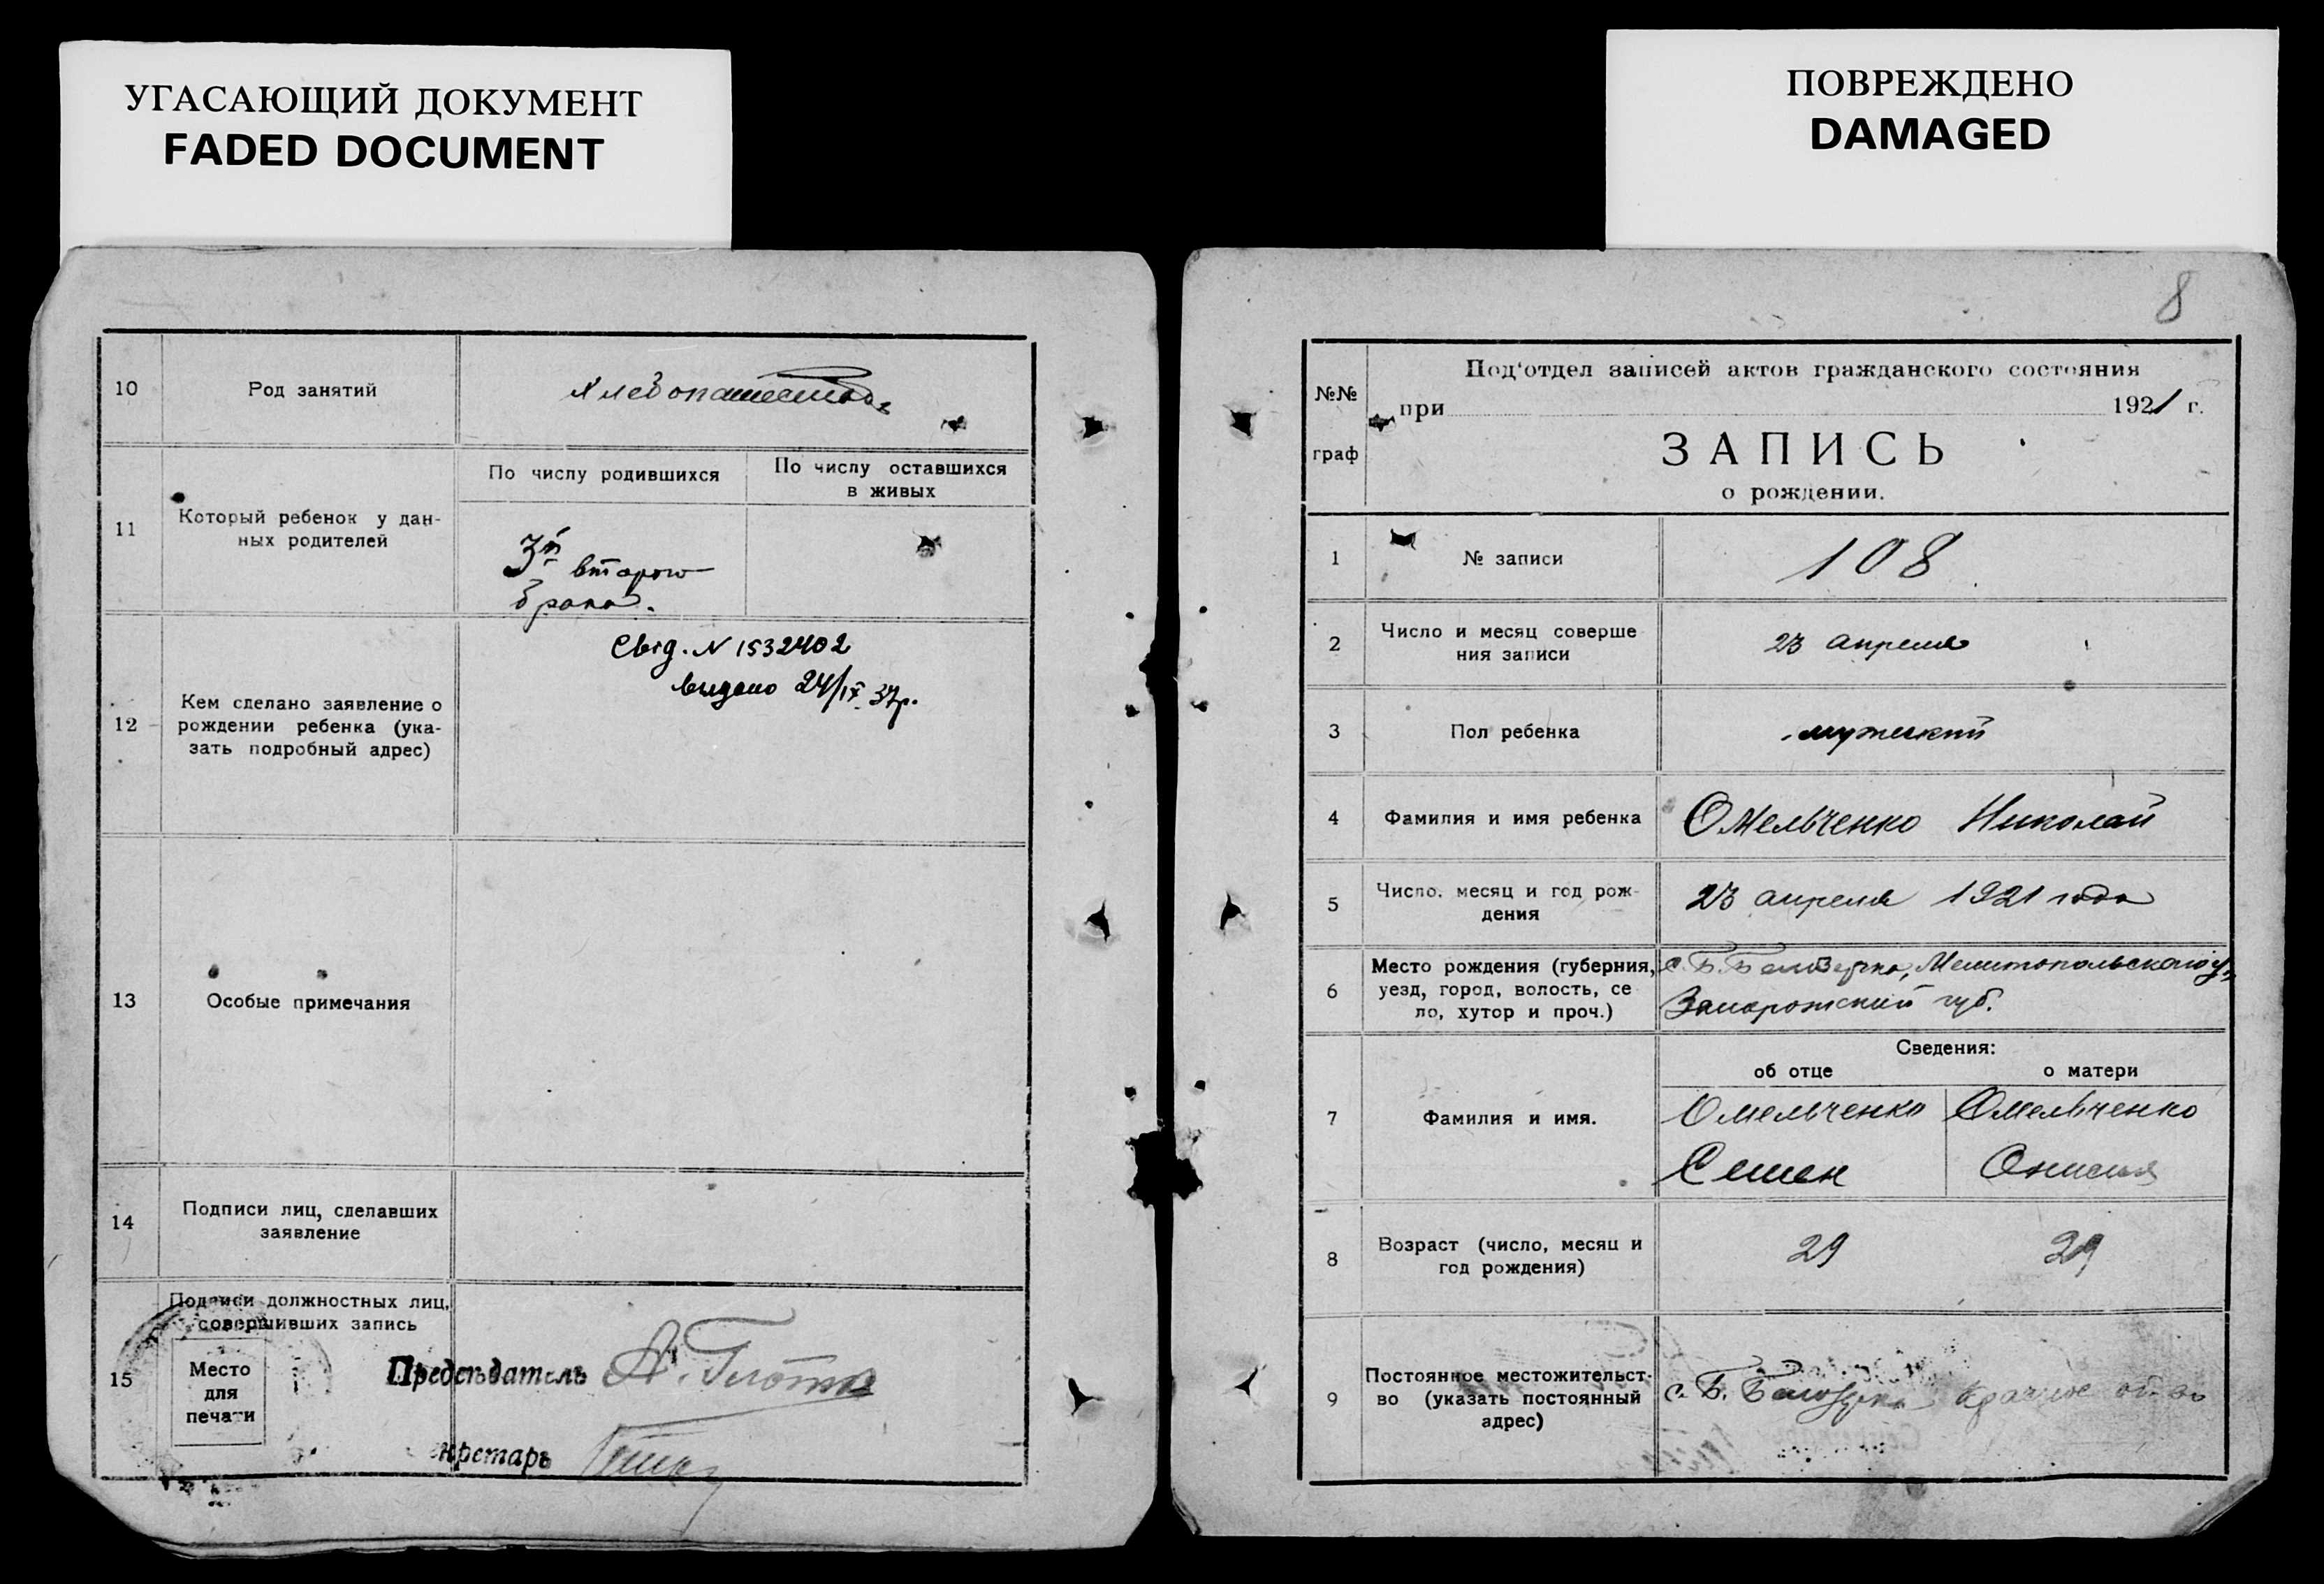 УГАСАЮЩИЙ ДОКУМЕНТ
FADED DOCUMENT
10
Род занятий
Хлебопашество
11
Который ребенок у дан-
ных родителей
По числу родившихся
По числу оставшихся
в живых
3й
второго
брака.
12
Кем сделано заявление о
рождении ребенка (ука-
зать подробный адрес)
Свід. N 1532402
видано 24/IX 37р.
13
Особые примечания
14
Подписи лиц, сделавших
заявление
15
Подписи должностных лиц,
совершивших запись
Место
для
печати
Председатель А.
кретарь
ПОВРЕЖДЕНО
DAMAGED
8
№№
граф
Под'отдел записей актов гражданского состояния
при 1921 г.
ЗАПИСЬ
о рождении.
1
№ записи
108
2
Число и месяц соверше
ния записи
23 апреля
3
Пол ребенка
мужской
4
Фамилия и имя ребенка
Омельченко Николай
5
Число, месяц и год рож-
дения
23 апреля 1921 года
6
Место рождения (губерния,
уезд, город, волость, се
ло, хутор и проч.)
с. Б. Белозерка, Мелитопольского у.,
Запорожский губ.
Сведения:
об отце
о матери
7
Фамилия и имя.
Омельченко
Семен
Омельченко
Анисия
8
Возраст (число, месяц и
год рождения)
29
29
9
Постоянное местожительст-
во (указать постоянный
адрес)
с. Б. Белозерка